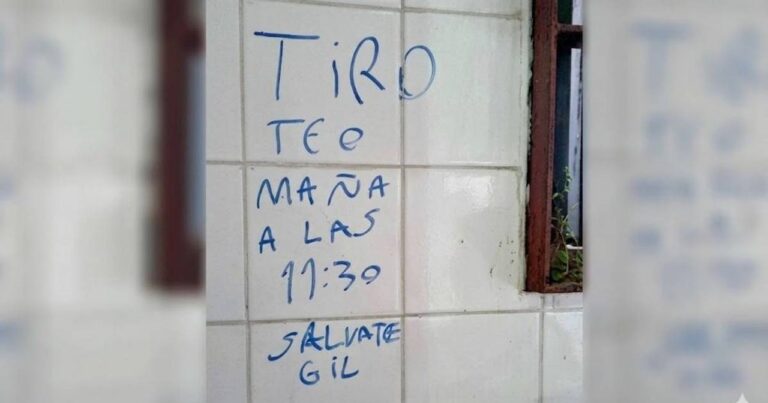 TiRO
TEO
MAÑA
A LAS
11:30
SALVATE
GIL